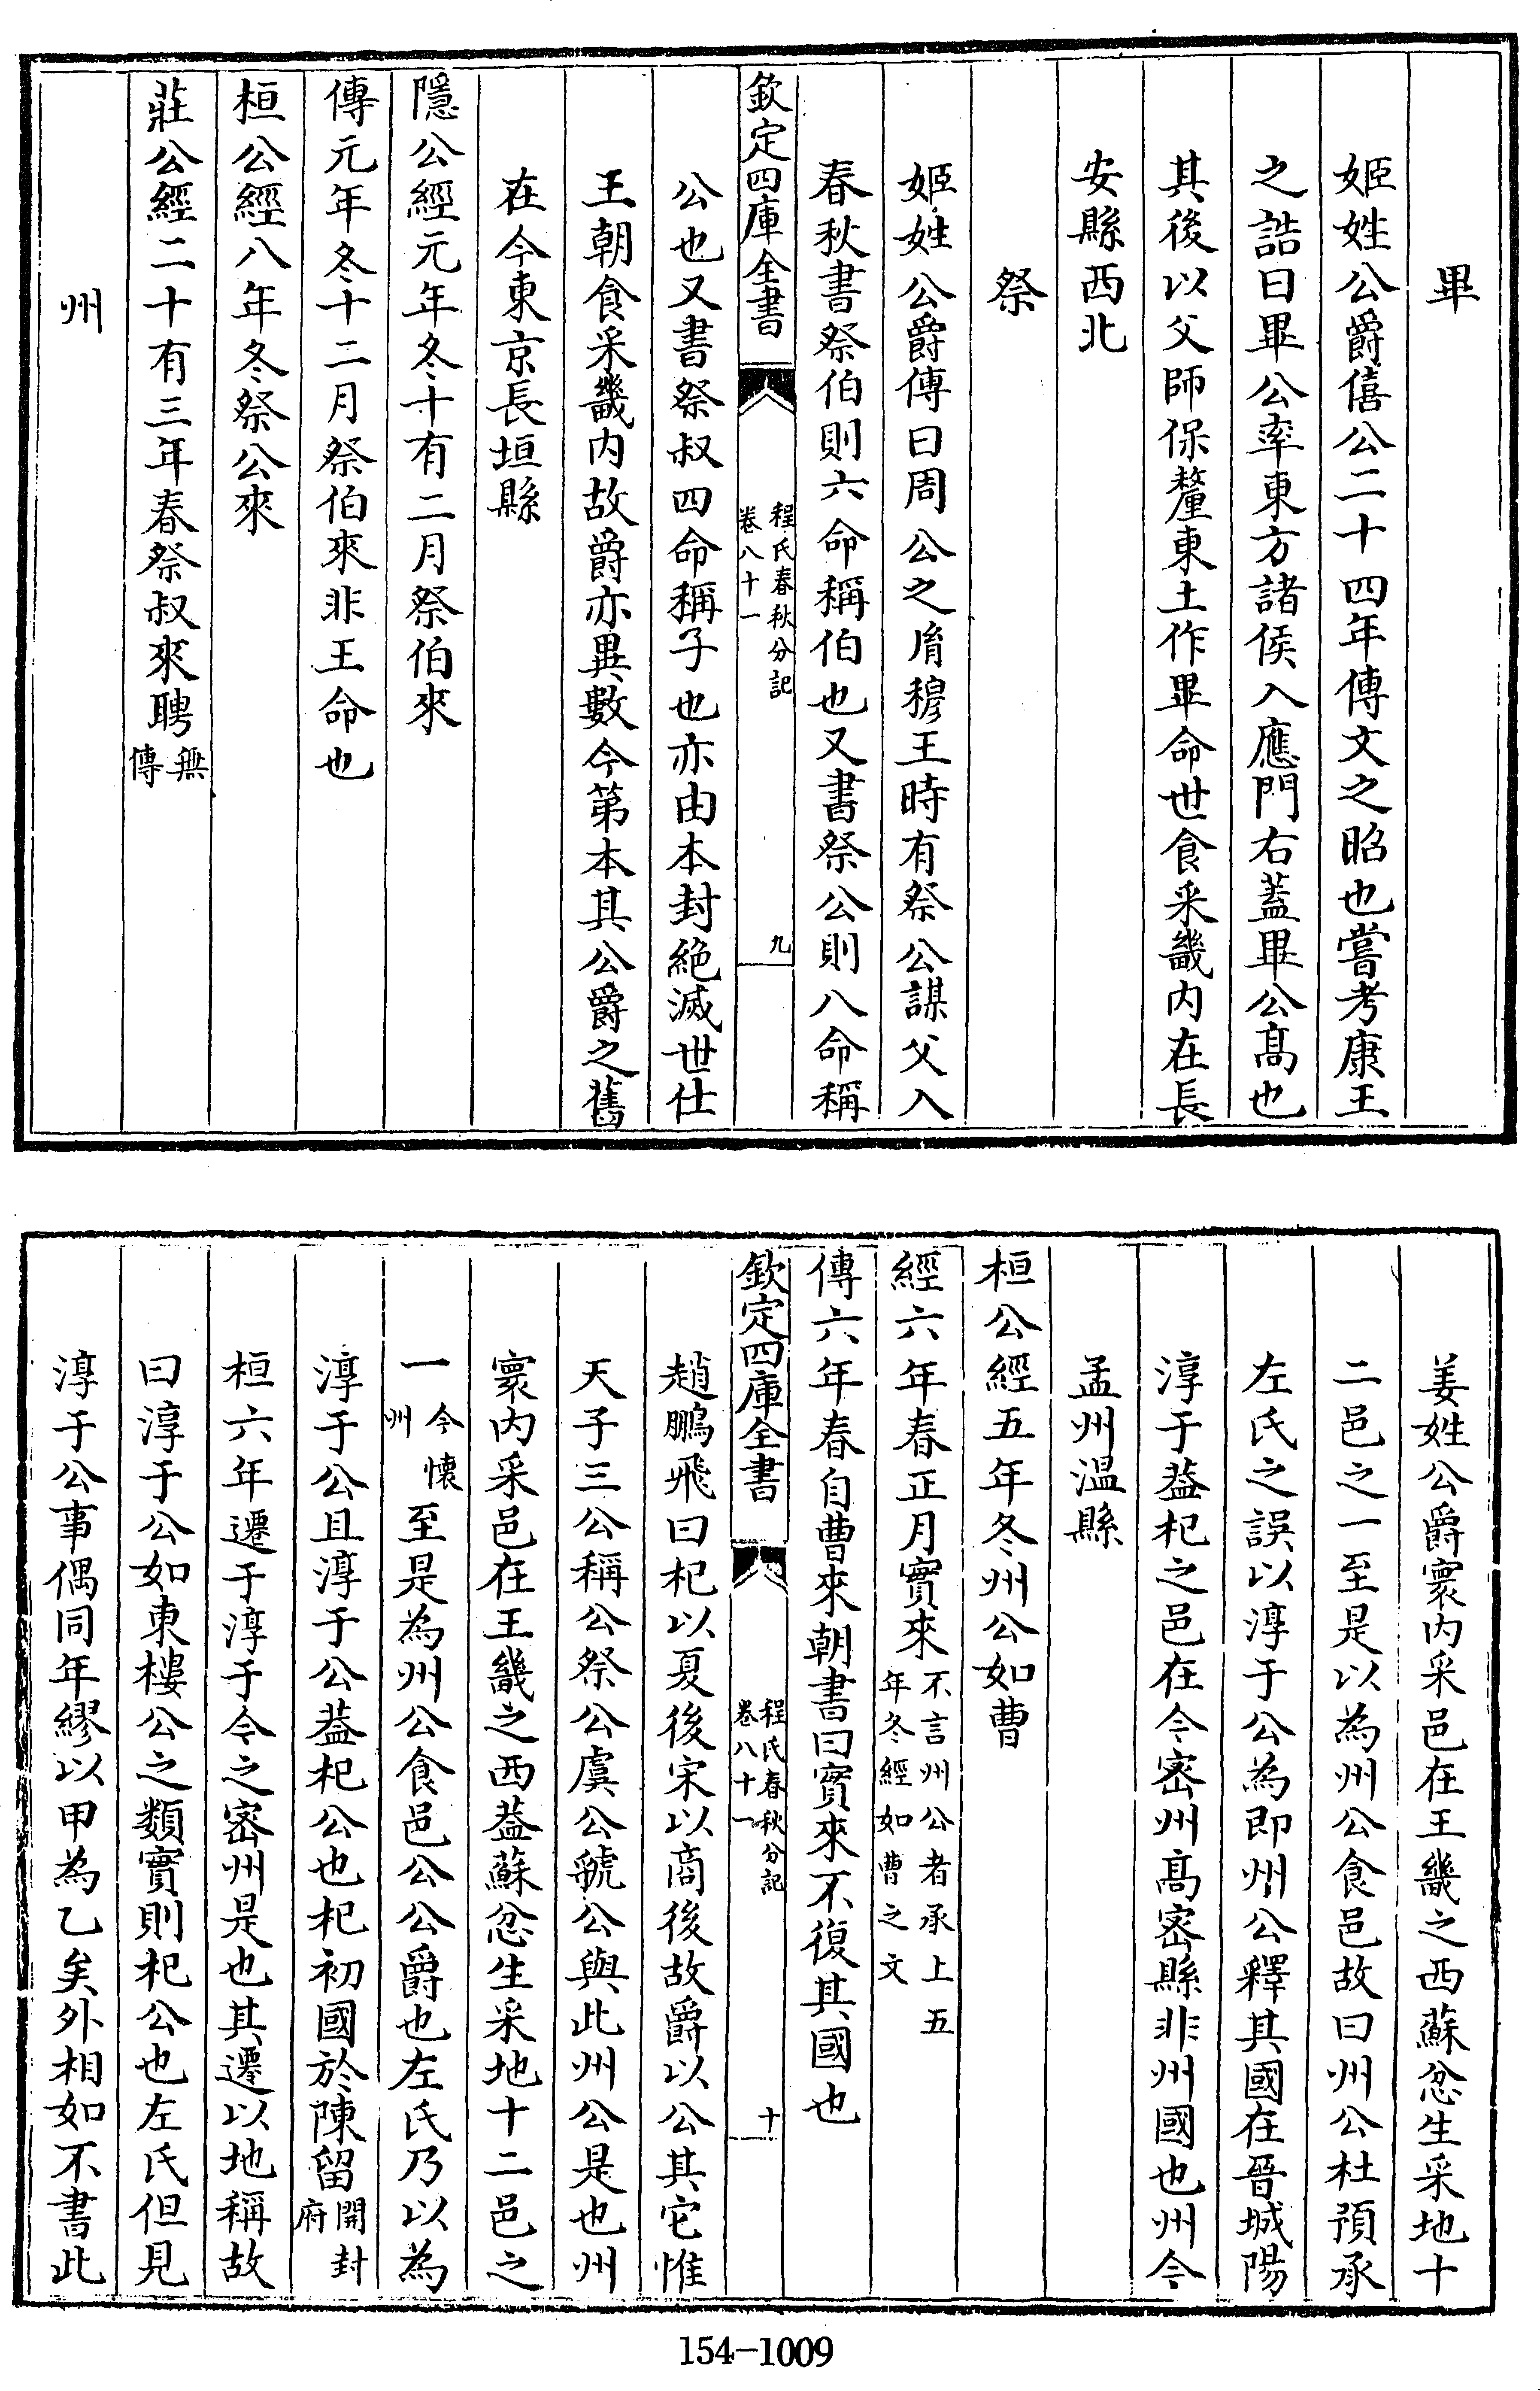 畢
姬姓公爵僖公二十四年傳文之昭也嘗考康王
之誥曰畢公率東方諸侯入應門右蓋畢公髙也
其後以父師保釐東土作畢命世食采畿内在長
安縣西北
祭
姬姓公爵傳曰周公之胤穆王時有祭公謀父入
春秋書祭伯則六命稱伯也又書祭公則八命稱
欽定四庫全書
程氏春秋分記
卷八十一
九
公也又書祭叔四命稱子也亦由本封絶滅世仕
王朝食采畿内故爵亦異數今第本其公爵之舊
在今東京長垣縣
隱公經元年冬十有二月祭伯來
傳元年冬十二月祭伯來非王命也
桓公經八年冬祭公來
莊公經二十有三年春祭叔來聘無傳
州
姜姓公爵寰内采邑在王畿之西蘇忿生采地十
二邑之一至是以為州公食邑故曰州公杜預承
左氏之誤以淳于公為即州公釋其國在晉城陽
淳于葢杞之邑在今宻州髙宻縣非州國也州今
孟州溫縣
桓公經五年冬州公如曹
經六年春正月實來不言州公者承上五年冬經如曹之文
傳六年春自曹來朝書曰實來不復其國也
欽定四庫全書
程氏春秋分記
卷八十一
十
趙鵬飛曰杞以夏後宋以商後故爵以公其它惟
天子三公稱公祭公虞公虢公與此州公是也州
寰内采邑在王畿之西葢蘇忿生采地十二邑之
一今懷州至是為州公食邑公公爵也左氏乃以為
淳于公且淳于公葢杞公也杞初國於陳留開封府
桓六年遷于淳于今之宻州是也其遷以地稱故
曰淳于公如東樓公之類實則杞公也左氏但見
淳于公事偶同年繆以甲為乙矣外相如不書此
154-1009